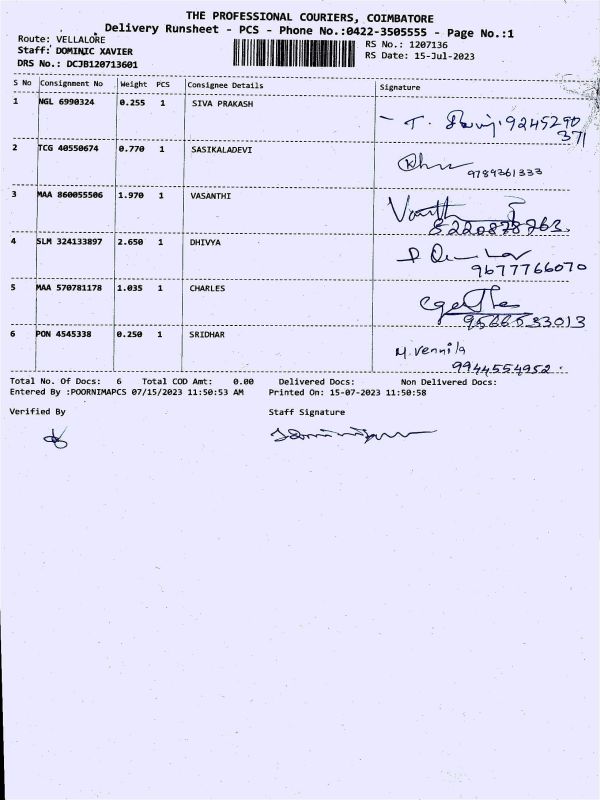 THE PROFESSIONAL COURIERS, COIMBATORE
Delivery Runsheet - PCS - Phone No.:0422-3505555 - Page No.:1
Route: VELLALORE
RS No.: 1207136
Staff: DOMINIC XAVIER
RS Date: 15-Jul-2023
DRS No.: DCJB120713601
S No Consignment No Weight PCS Consignee Details Signature
1 NGL 6990324 0.255 1 SIVA PRAKASH
- T. 9245290
371
2 TCG 40550674 0.770 1 SASIKALADEVI
9789361333
3 MAA 860055506 1.970 1 VASANTHI
8220878763.
4 SLM 324133897 2.650 1 DHIVYA
9677766070
5 MAA 570781178 1.035 1 CHARLES
9566533013
6 PON 4545338 0.250 1 SRIDHAR
M. Vennila
9944554952.
Total No. Of Docs: 6 Total COD Amt: 0.00 Delivered Docs: Non Delivered Docs:
Entered By :POORNIMAPCS 07/15/2023 11:50:53 AM Printed On: 15-07-2023 11:50:58
Verified By Staff Signature